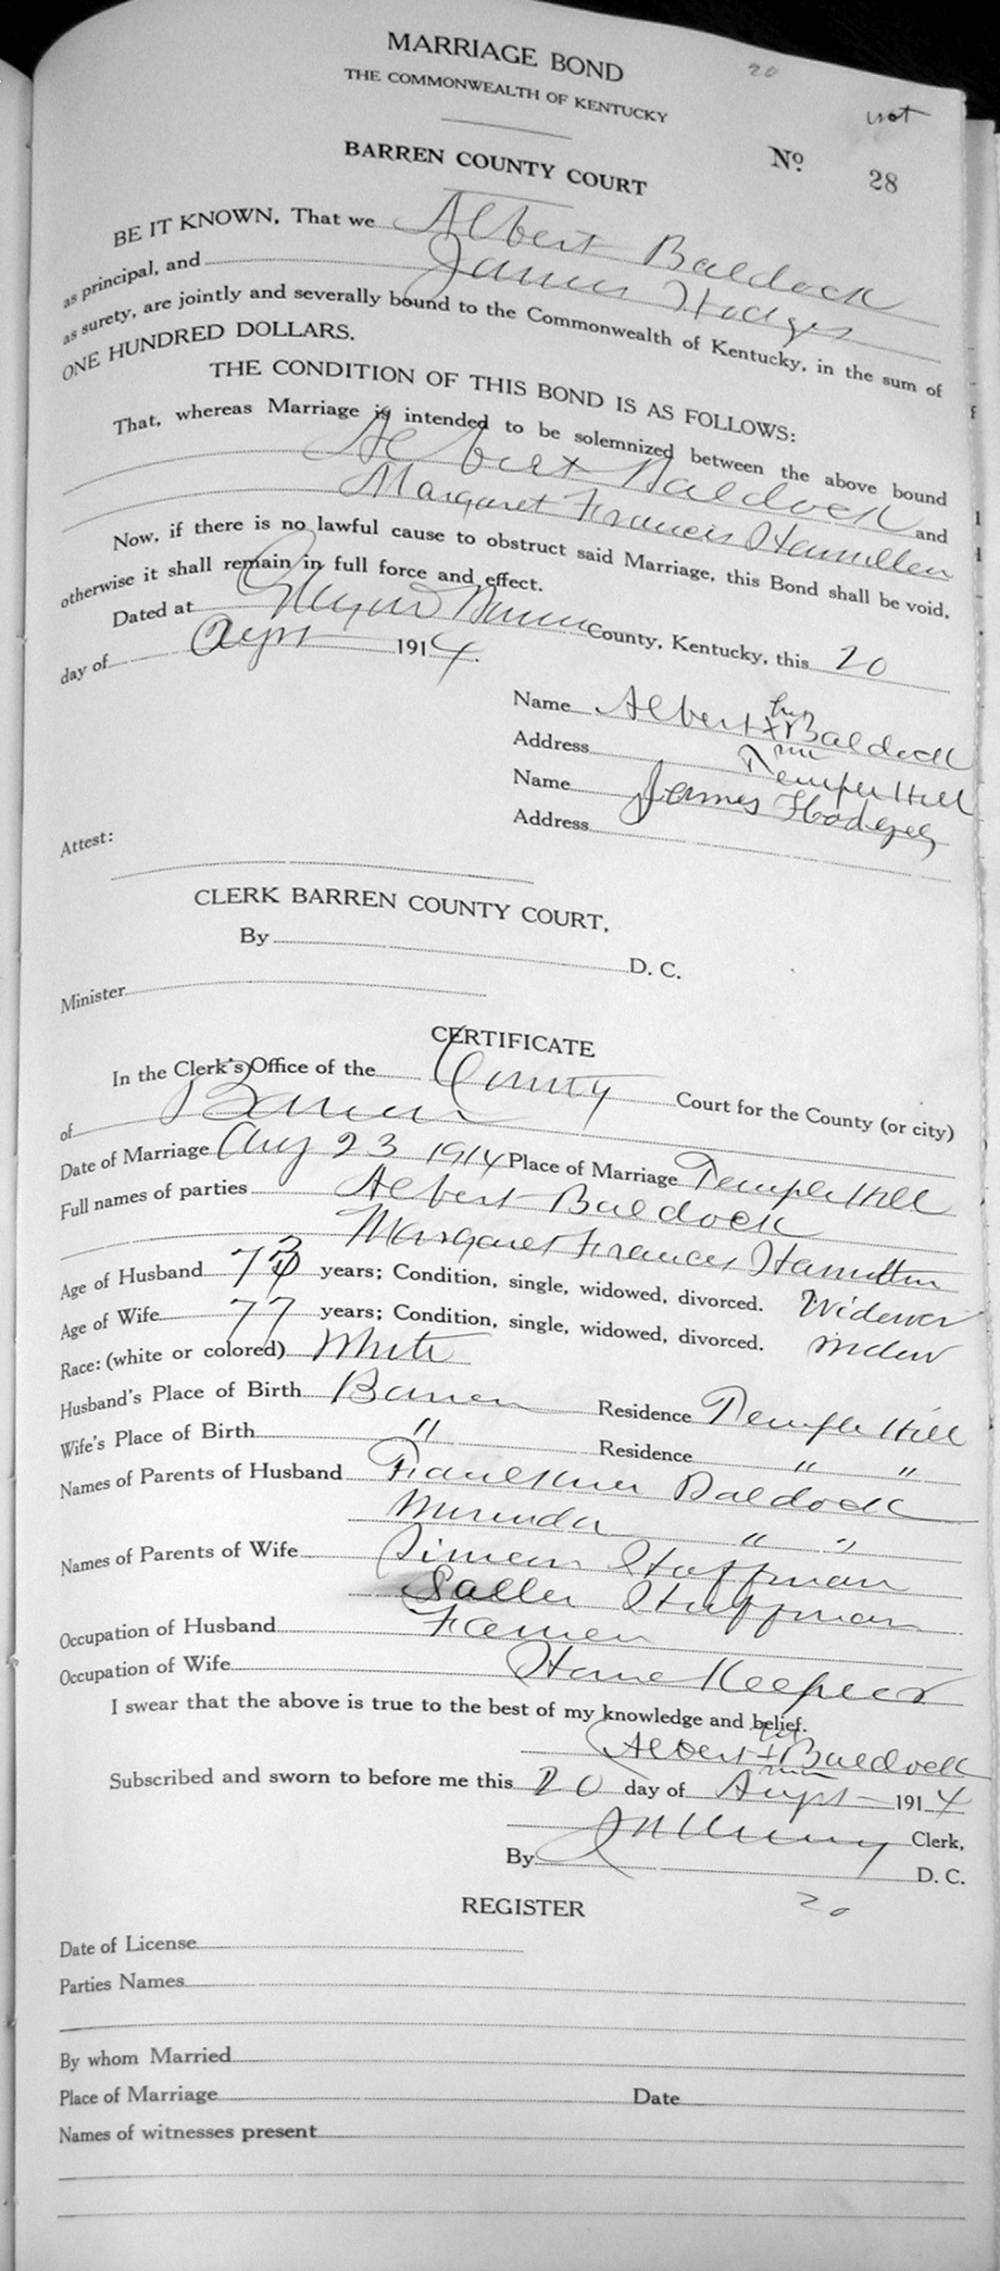 MARRIAGE BOND
20
THE COMMONWEALTH OF KENTUCKY
not
BARREN COUNTY COURT
No. 28
BE IT KNOWN, That we Albert Baldock
as principal, and James Hodges
as surety, are jointly and severally bound to the Commonwealth of Kentucky, in the sum of
ONE HUNDRED DOLLARS.
THE CONDITION OF THIS BOND IS AS FOLLOWS:
That, whereas Marriage is intended to be solemnized between the above bound
Albert Baldock and
Margaret Frances Hamilton
Now, if there is no lawful cause to obstruct said Marriage, this Bond shall be void,
otherwise it shall remain in full force and effect.
Dated at County, Kentucky, this 20
day of Augst 1914.
Name Albert his x Baldock
Address Temple Hill
Name James Hodges
Address
Attest:
CLERK BARREN COUNTY COURT.
By D. C.
Minister
CERTIFICATE
In the Clerk's Office of the County Court for the County (or city)
of Barren
Date of Marriage Aug 23 1914 Place of Marriage Temple Hill
Full names of parties Albert Baldock
Margaret Frances Hamilton
Age of Husband 73 years; Condition, single, widowed, divorced. Widower
Age of Wife 77 years; Condition, single, widowed, divorced. widow
Race: (white or colored) White
Husband's Place of Birth Barren Residence Temple Hill
Wife's Place of Birth " Residence " "
Names of Parents of Husband Faulkner Baldock
Mirinda " "
Names of Parents of Wife Simeon Huffman
Saller Huffman
Occupation of Husband Farmer
Occupation of Wife Home Keeper
I swear that the above is true to the best of my knowledge and belief.
Albert his x Baldock
Subscribed and sworn to before me this 20 day of Augst 1914
Clerk,
By D. C.
20
REGISTER
Date of License
Parties Names
By whom Married
Place of Marriage Date
Names of witnesses present